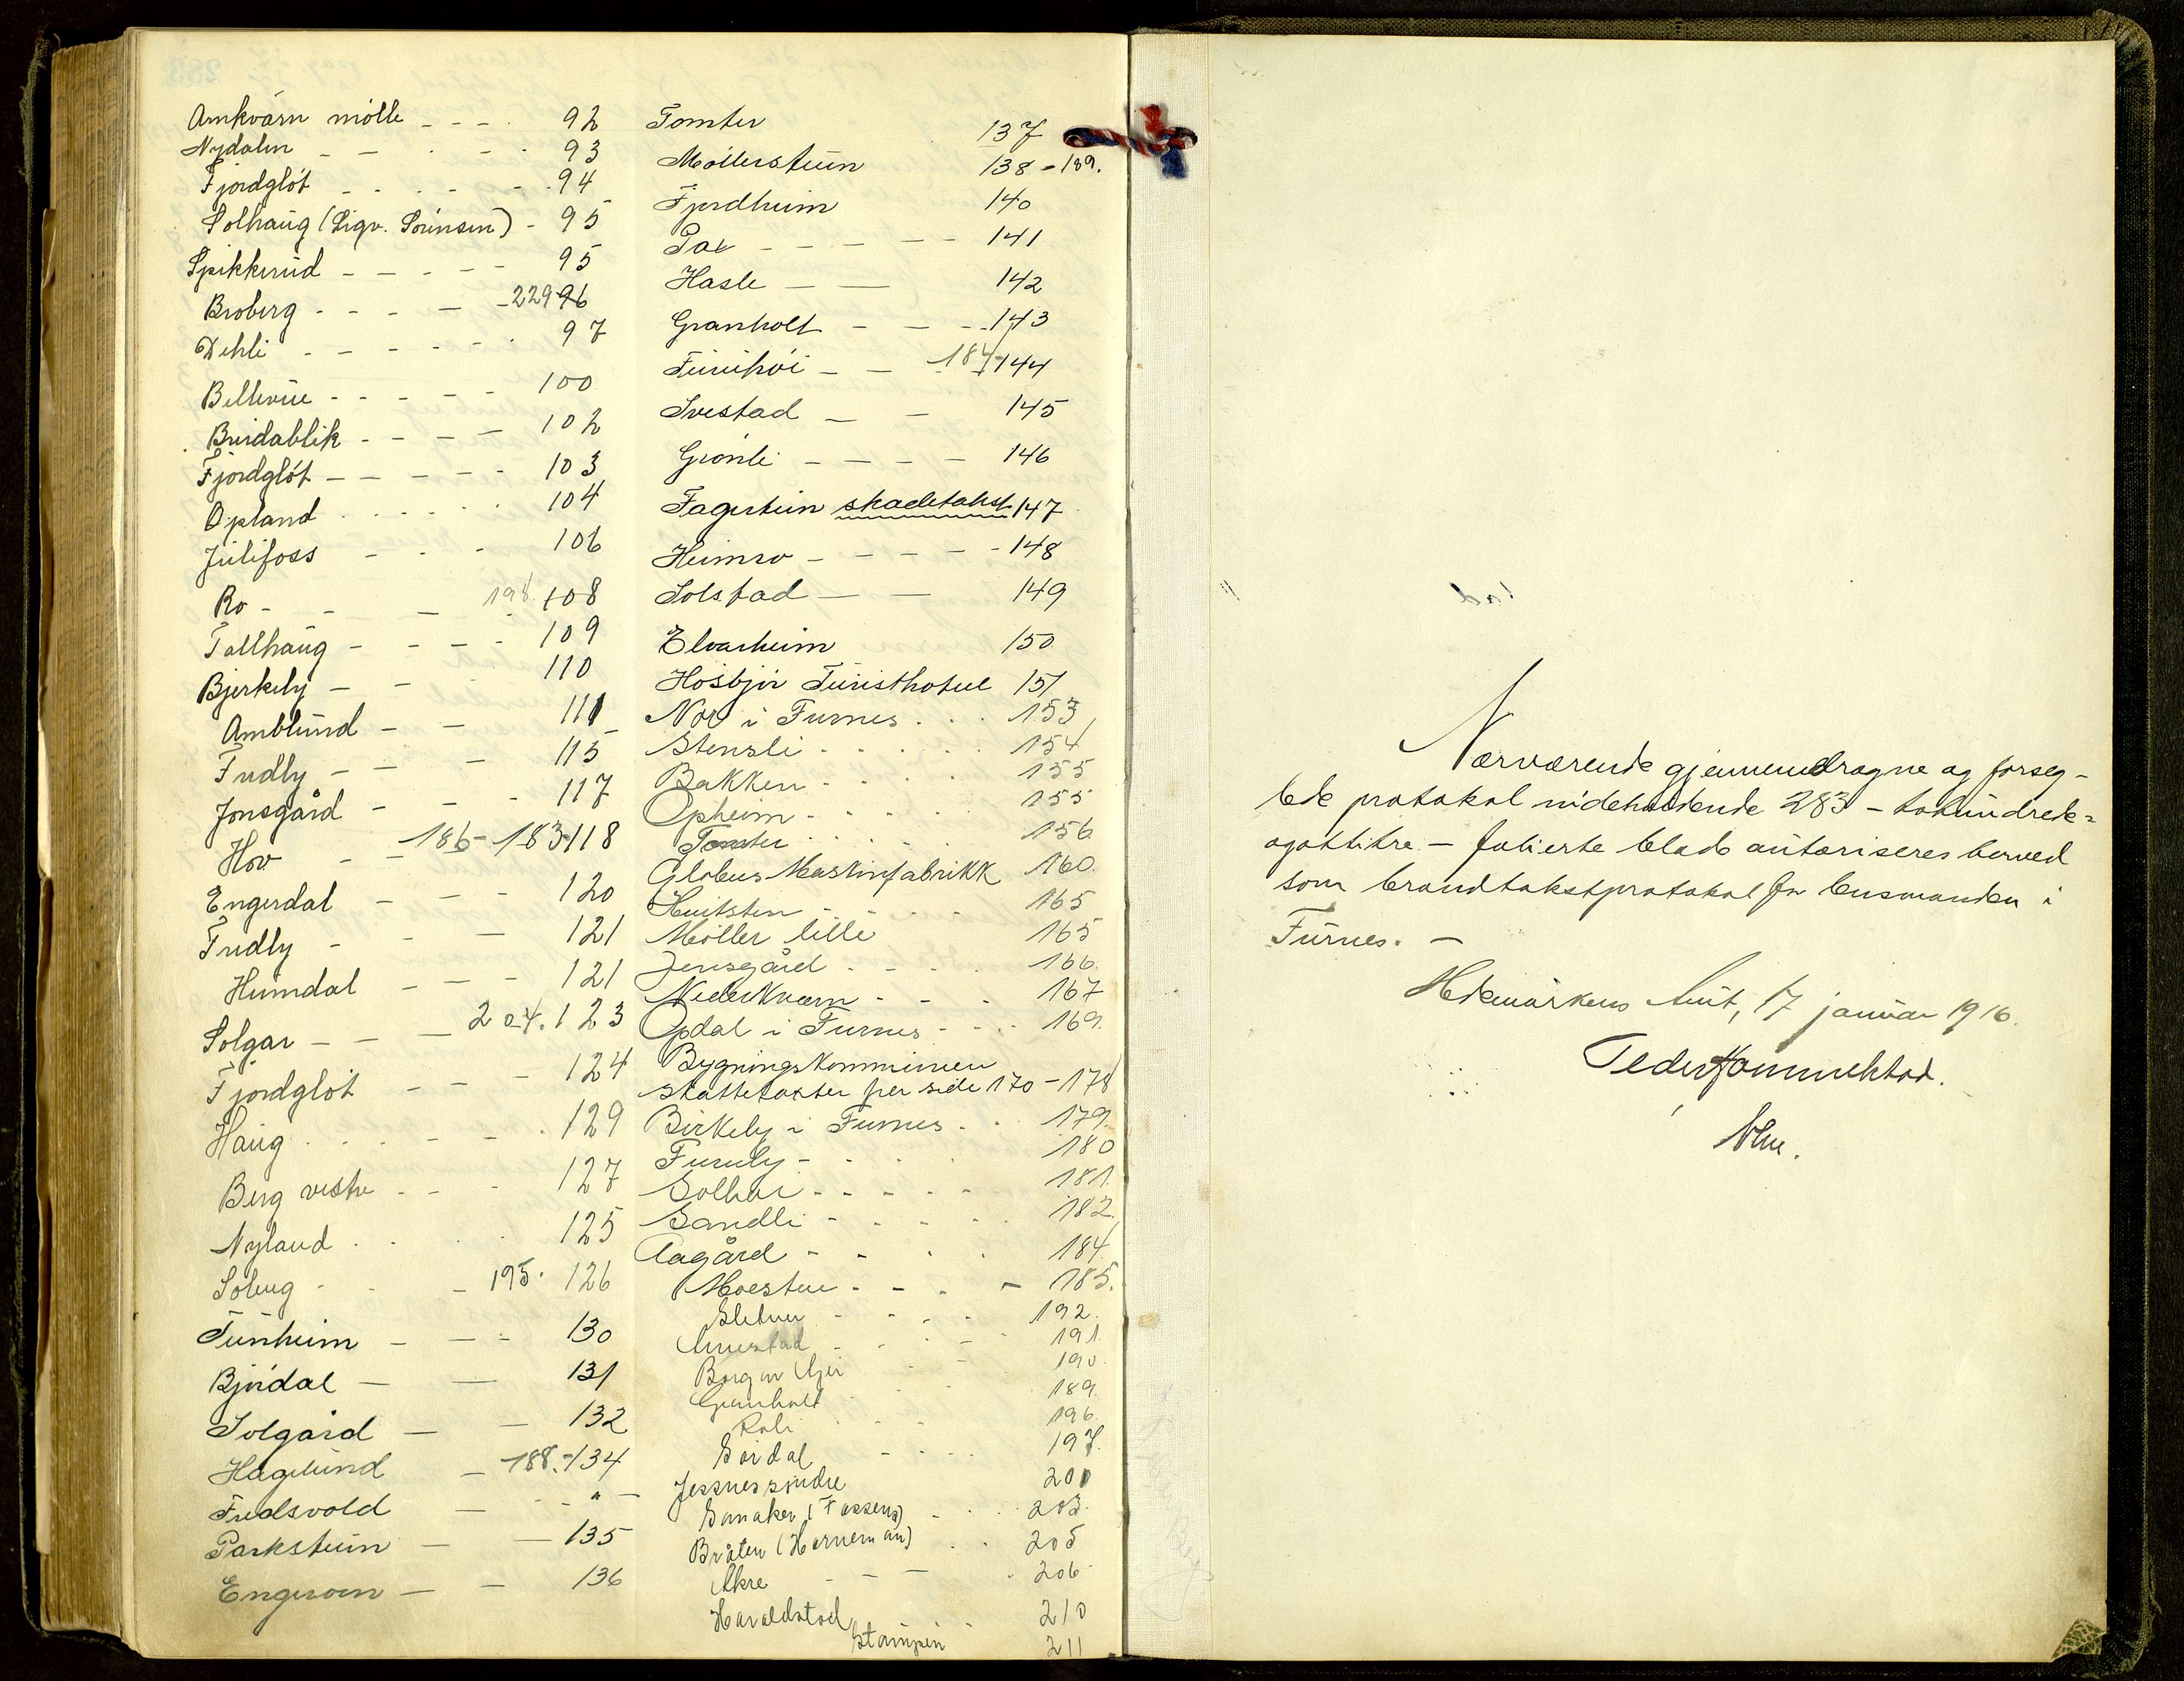 Amkvärn mölle - - - - 92
Nydalen - - - - - 93
Fjordgløt - - - - - 94
Solhaug (Sigv. Sörensen) - 95
Spikkerud - - - - - 95
Broberg - - - - - 229 96
Dehli - - - - - - 97
Bellevue - - - - - 100
Breidablik - - - - 102
Fjordgløt - - - - - 103
Opland . . . . . . 104
Julifoss - - - 106
Ro - - - 198. 108
Tallhaug - - - - - 109
Bjerkely - - - 110
Amblund - - 111
Fredly - - - 115
Jonsgård - - - 117
Hov - - 186 - 183 - 118
Engerdal - - - 120
Fredly - - - 121
Heimdal - - - 121
Solgar - - - 204. 123
Fjordgløt - - - 124
Haug . . . - - . 129
Berg vestre - - - 127
Nyland . . . . 125
Soleng - - - 195. 126
Tunheim - - - 130
Bjørdal - - 131
Solgård - - 132
Haglund - 188. - 134
Fredsvold - - - " -
Parkstein - - 135
Engeroen - - 136
Tomter 137
Möllerstein 138 - 189.
Fjordheim 140
Pax - - - - - 141
Hasle - - 142
Granholt - - - 143
Furuhöi - - 187 - 144
Ivestad - - 145
Grönli - - - - 146
Fagertun skadetakst 147
Heimro - - - - - 148
Solstad - - 149
Elvarheim 150
Hösbjör Turisthotel 151
Nor i Furnes . . . 153
Stensli - . . . . 154
Bakken - . . . 155
Opheim - . . . 155
Tomter . . . . 156
Globus Maskinfabrikk 160.
Huitsten - - - - 165
Möller lille 165
Jensgård - - - . 166.
NederKværn - - - 167
Opdal i Furnes - - - 169.
BygningsKommunen
skattetakster per side 170 - 178
Birkely i Furnes . . 179.
Furuly - - . . . 180
Solhov - - - - - 181.
Sandli - - - . . 182.
Aagård - - . . 184.
Moestue - - - - 185.
Sletner - - - - 192.
191.
Borgen 190.
Granholt . . . 189.
Roli . . . 196.
Sørdal - . . . 197.
Jessnes søndre 200
Sanaker (Fossens) - . . 203.
Bråten (Herneman) . . 205
Akre - - - . 206
Haraldstad - - 210
Stampen 211
Nærværende gjennemdragne og forseg-
lede protokol indeholdende 283 - tohundrede-
ogottitre - folierte blade autoriseres herved
som brandtakstprotokol for lensmanden i
Furnes. -
Hedemarkens Amt, 17 januar 1916.
Peder